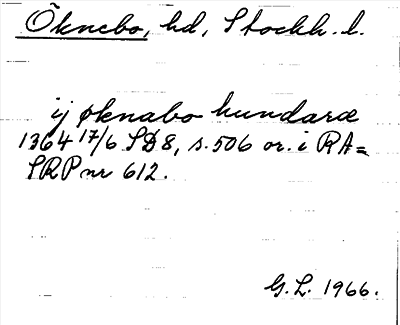 Öknebo, hd, Stockh. l.
ij øknabo hundaræ
1364 17/6 SD 8, s. 506 or. i RA=
SRP nr 612.
G. L. 1966.